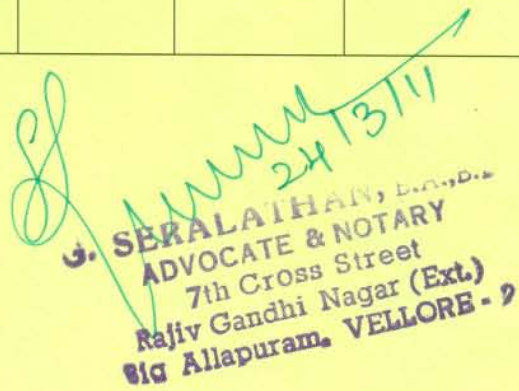 24/3/11
J. SERALATHAN, B.A.,B.L
ADVOCATE & NOTARY
7th Cross Street
Rajiv Gandhi Nagar (Ext.)
Big Allapuram, VELLORE - 9